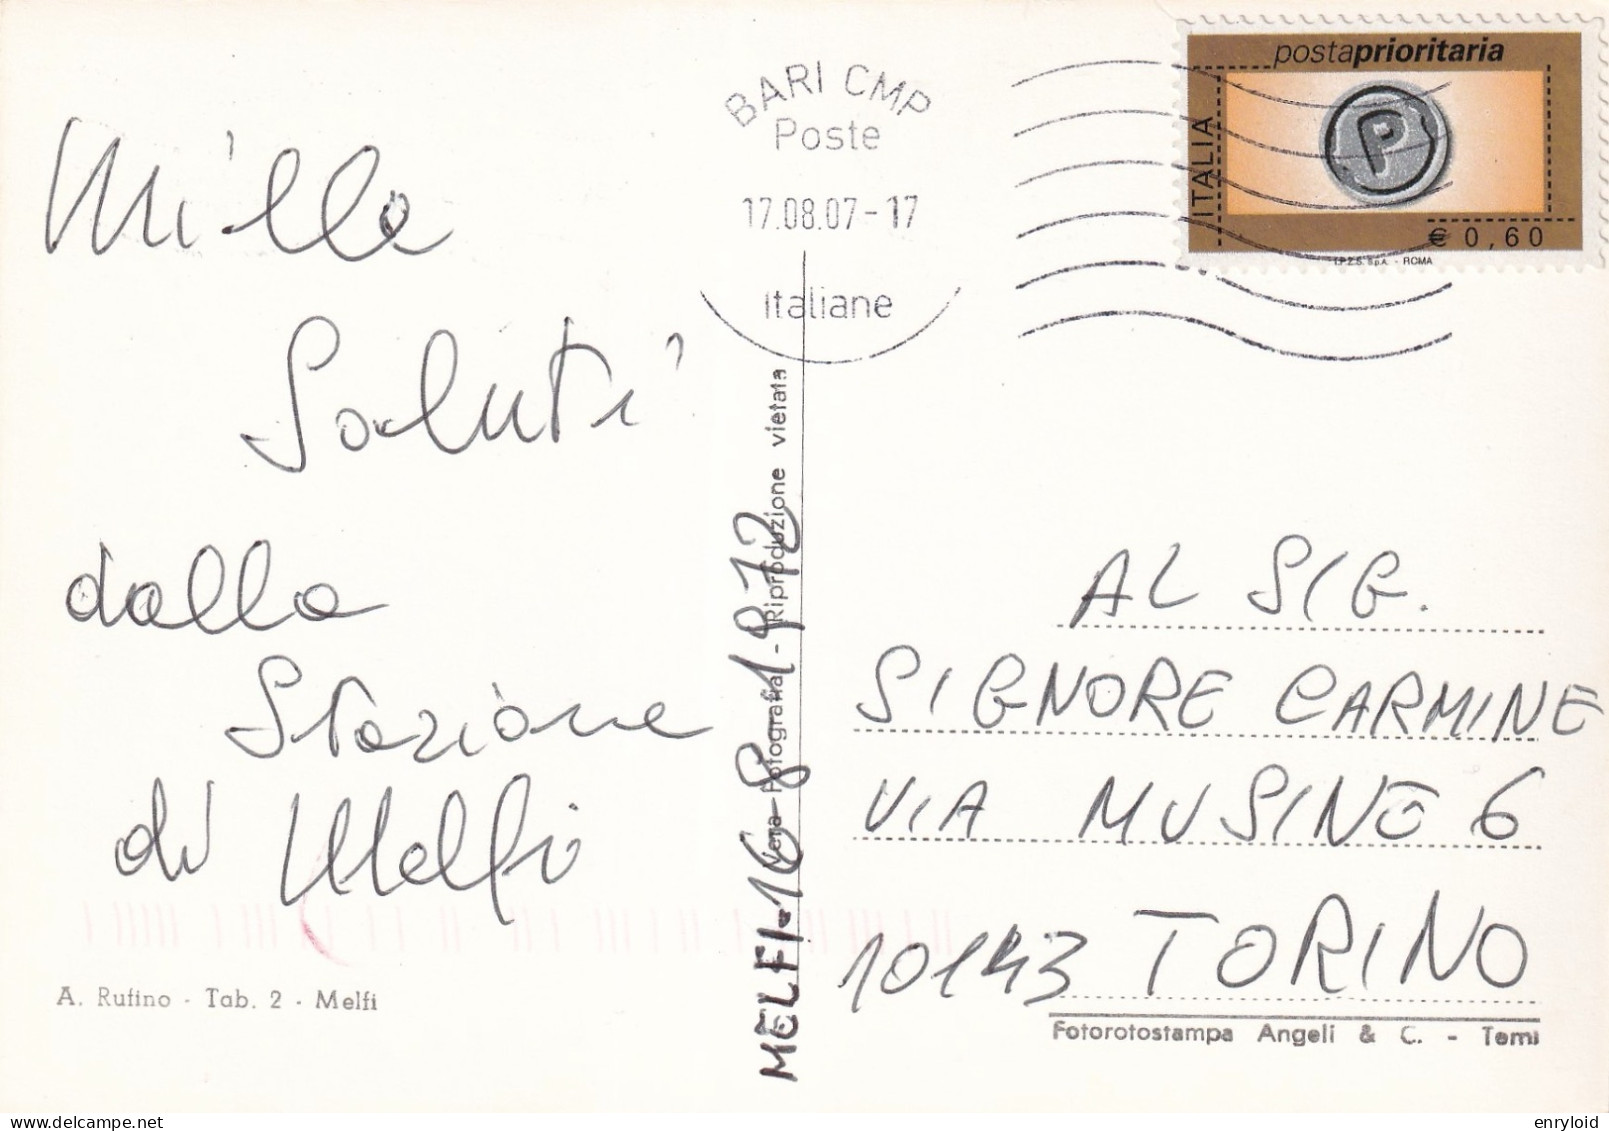 Mille
Saluti
dalla
Stazione
di Melfi
A. Rufino - Tab. 2 - Melfi
BARI CMP
Poste
17.08.07-17
italiane
postaprioritaria
ITALIA
€ 0,60
I.P.Z.S. S.p.A. - ROMA
Vera Fotografia - Riproduzione vietata
MELFI-16-8-1972
AL SIG.
SIGNORE CARMINE
VIA MUSINÈ 6
10143 TORINO
Fotorotostampa Angeli & C. - Terni
enryloid
delcampe.net